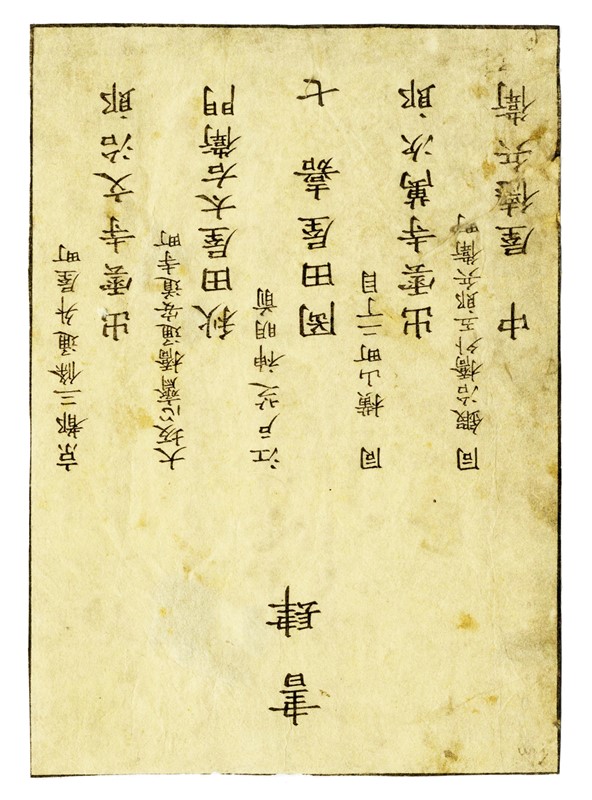 書肆
京都三條通升屋町
出雲寺文治郎
大坂心齋橋通安道寺町
秋田屋太右衛門
江戸芝神明前
岡田屋嘉七
同 横山町二丁目
出雲寺萬次郎
同 鍛治橋外五郎兵衛町
中屋德兵衛